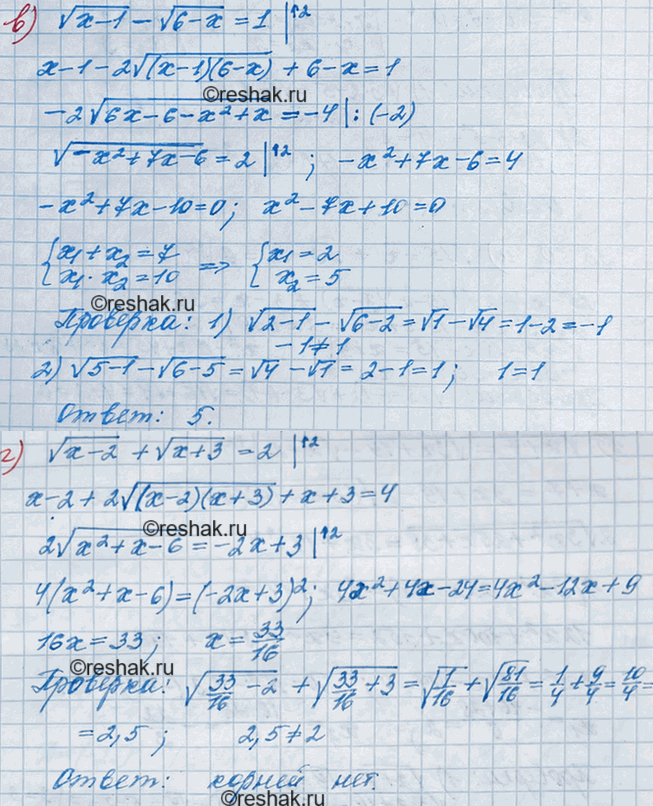 в) √(x-1) - √(6-x) = 1 |↑2
x-1-2√((x-1)(6-x)) + 6-x=1
©reshak.ru
-2√(6x-6-x²+x) = -4 | : (-2)
√(-x²+7x-6) = 2 |↑2 ; -x²+7x-6=4
-x²+7x-10=0; x²-7x+10=0
{x₁+x₂=7 x₁·x₂=10 => {x₁=2 x₂=5
©reshak.ru
Проверка: 1) √(2-1) - √(6-2) = √1 - √4 = 1-2 = -1
-1≠1
2) √(5-1) - √(6-5) = √4 - √1 = 2-1=1; 1=1
Ответ: 5.
г) √(x-2) + √(x+3) = 2 |↑2
x-2+2√((x-2)(x+3)) + x+3=4
©reshak.ru
2√(x²+x-6) = -2x+3 |↑2
4(x²+x-6)=(-2x+3)²; 4x²+4x-24=4x²-12x+9
16x=33; x=33/16
©reshak.ru
Проверка: √(33/16-2) + √(33/16+3) = √(1/16) + √(81/16) = 1/4 + 9/4 = 10/4 =
=2,5; 2,5≠2
Ответ: корней нет.
©reshak.ru